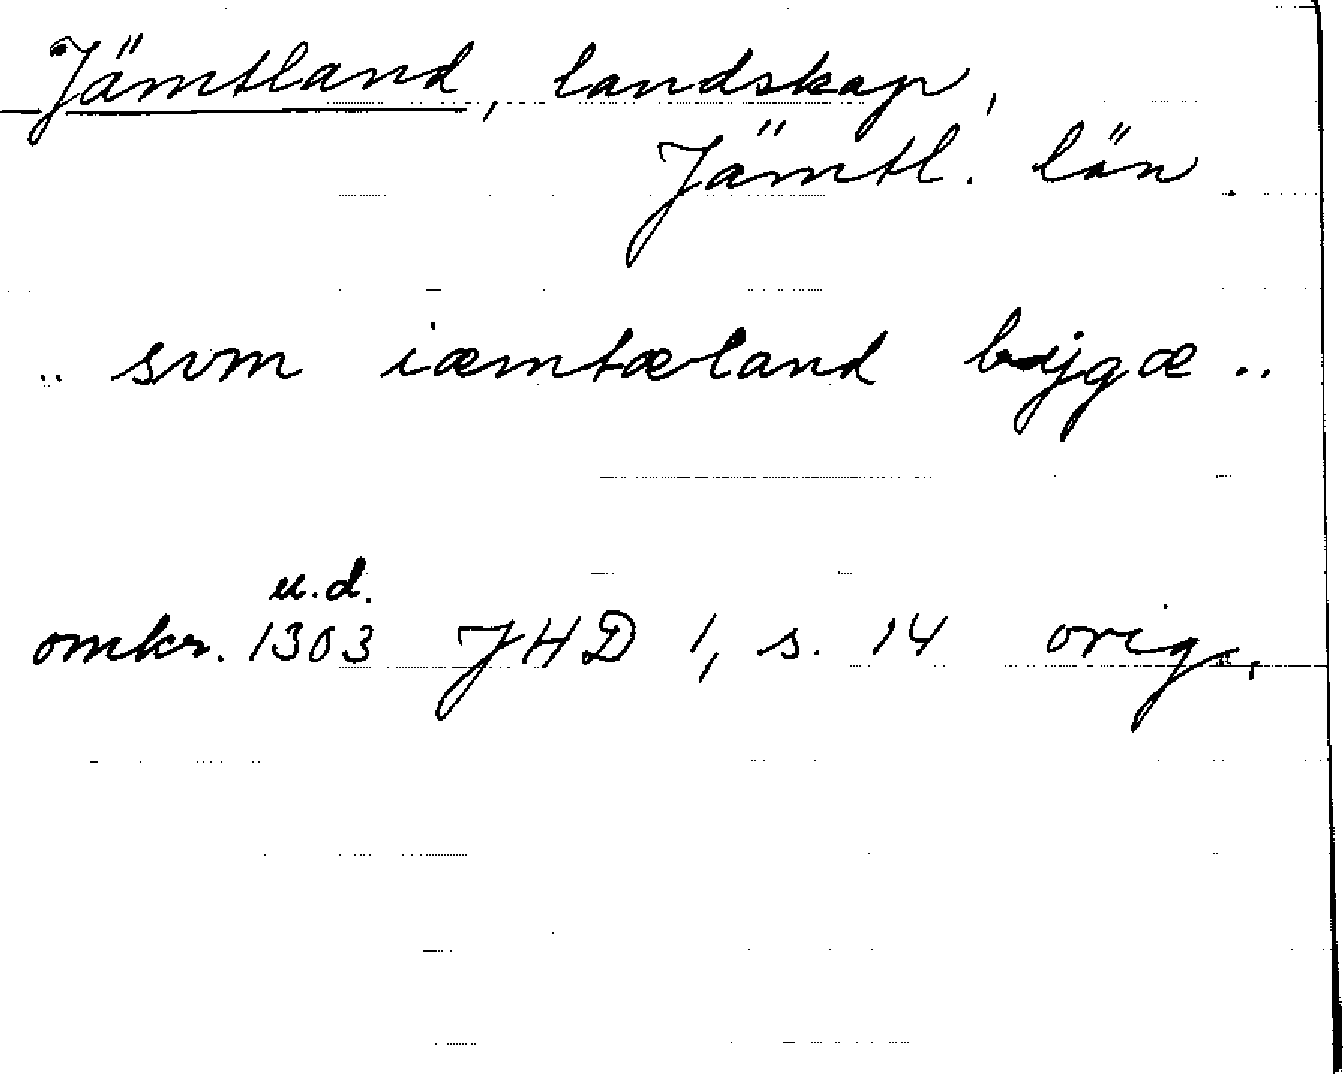 Jämtland, landskap,
Jämtl. län.
.. som iæmtæland byjgæ ..
u.d.
omkr. 1303 JHD 1, s. 14 orig.,